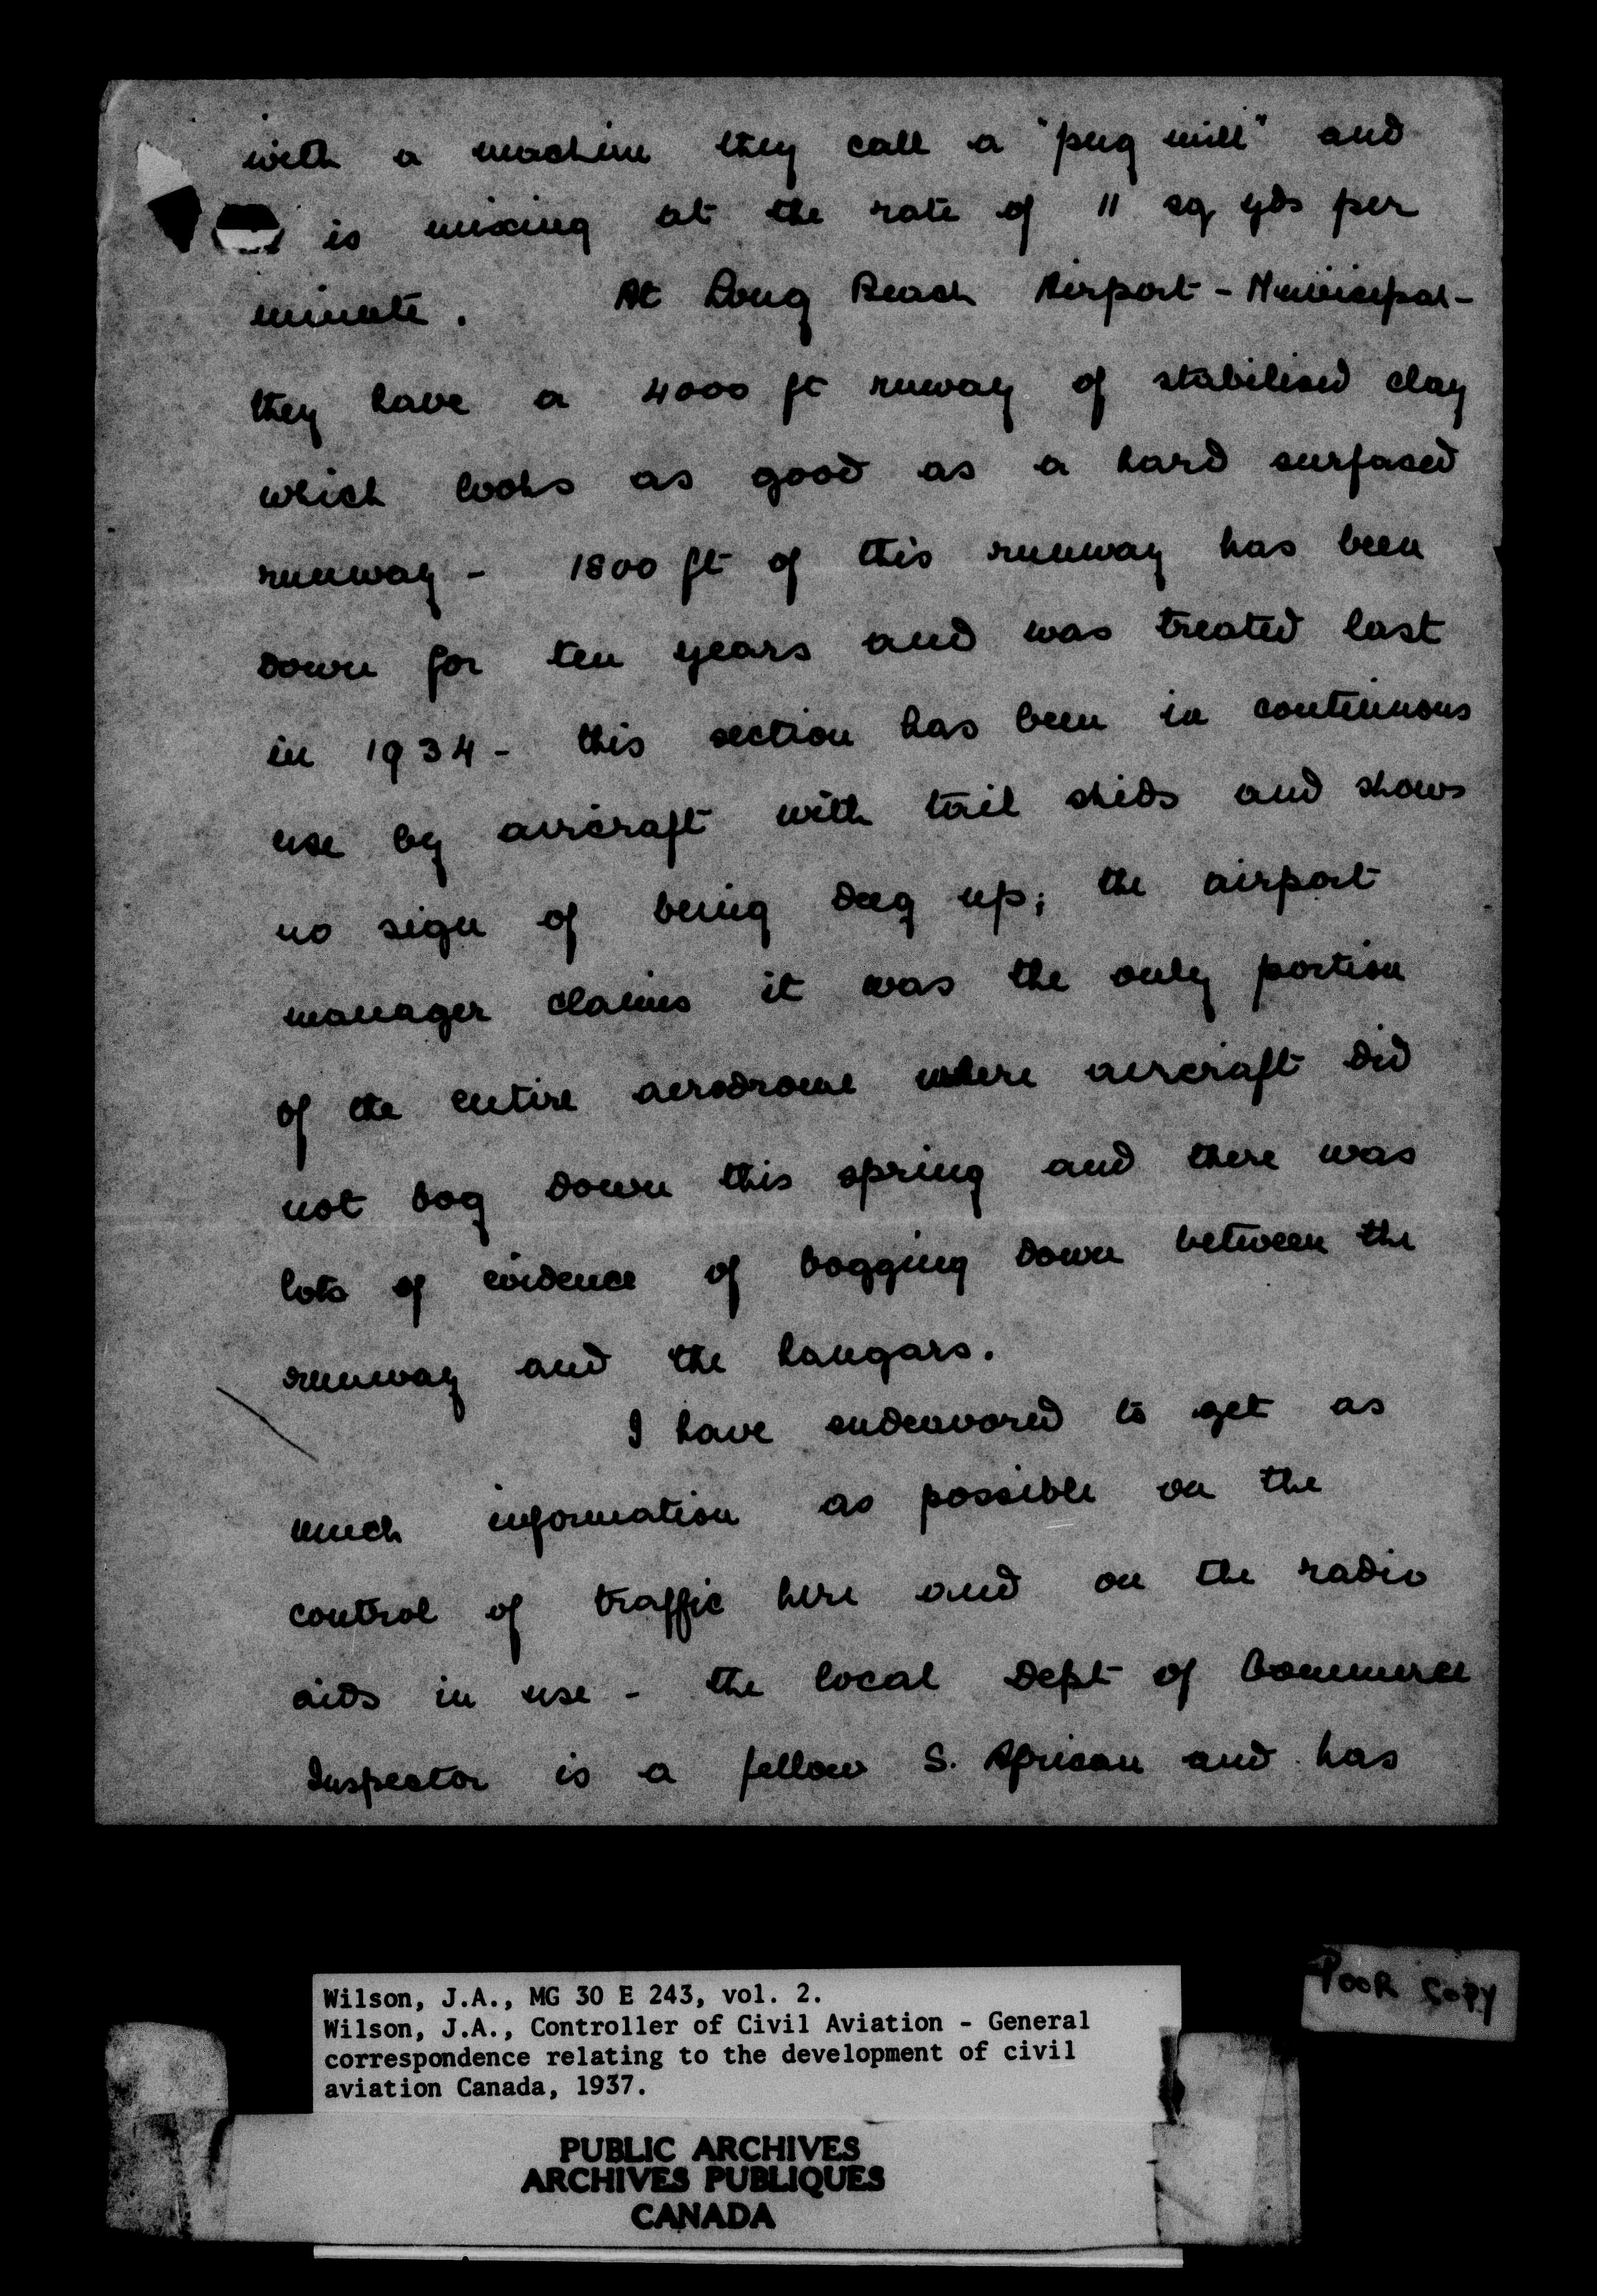 with a machine they call a "pug mill" and
is mixing at the rate of 11 sq yds per
minute. At Long Beach Airport - Municipal -
they have a 4000 ft runway of stabilised clay
which looks as good as a hard surfaced
runway - 1800 ft of this runway has been
down for ten years and was treated last
in 1934 - this section has been in continuous
use by aircraft with tail skids and shows
no sign of being dug up; the airport
manager claims it was the only portion
of the entire aerodrome where aircraft did
not bog down this spring and there was
lots of evidence of bogging down between the
runway and the hangars.
I have endeavored to get as
much information as possible on the
control of traffic here and on the radio
aids in use - the local Dept of Commerce
Inspector is a fellow S. African and has
POOR COPY
Wilson, J.A., MG 30 E 243, vol. 2.
Wilson, J.A., Controller of Civil Aviation - General
correspondence relating to the development of civil
aviation Canada, 1937.
PUBLIC ARCHIVES
ARCHIVES PUBLIQUES
CANADA